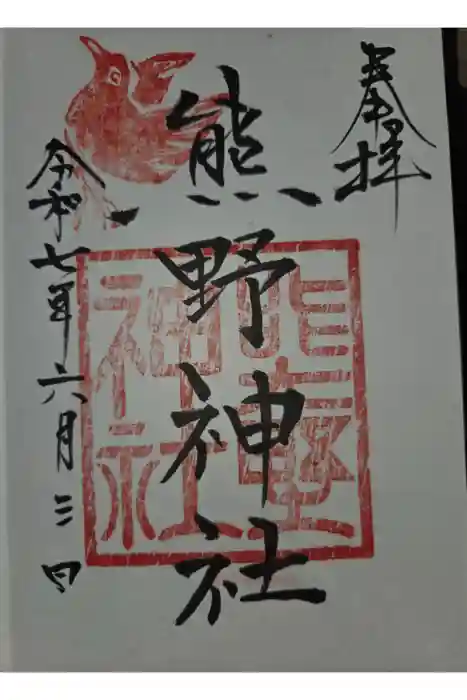 奉拝
熊野神社
令和七年六月三日
熊野
神社